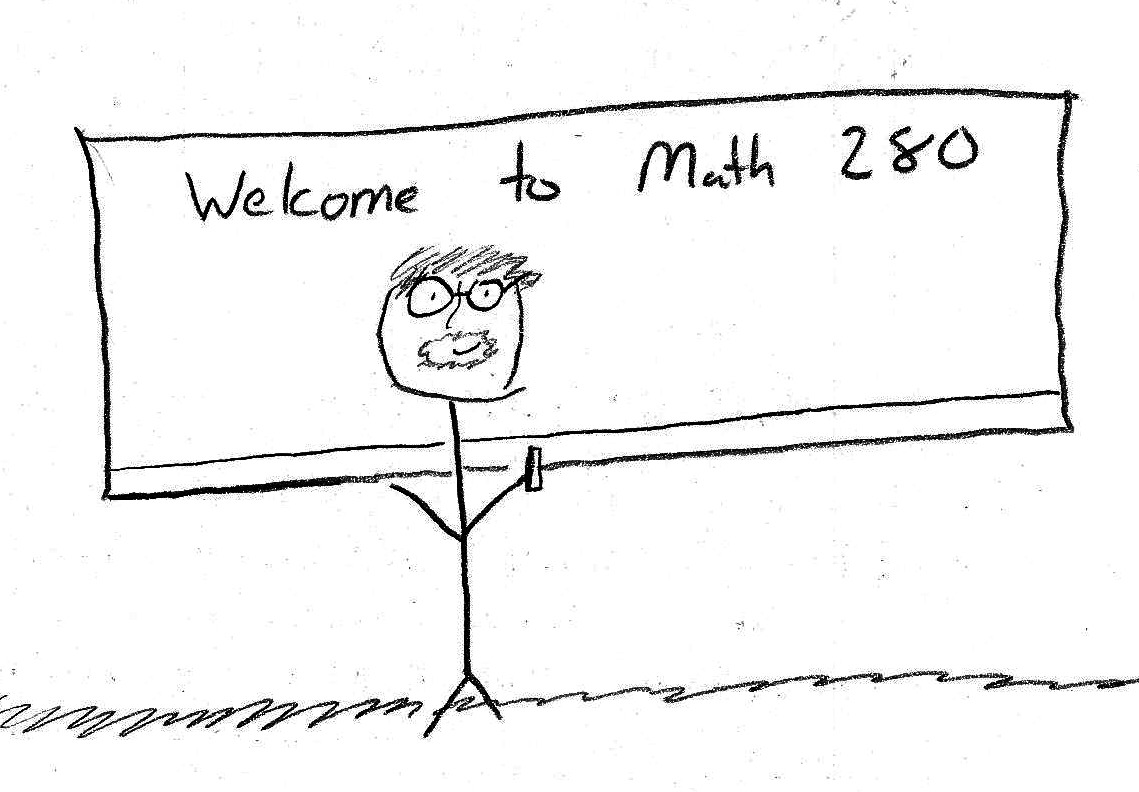 Welcome to Math 280